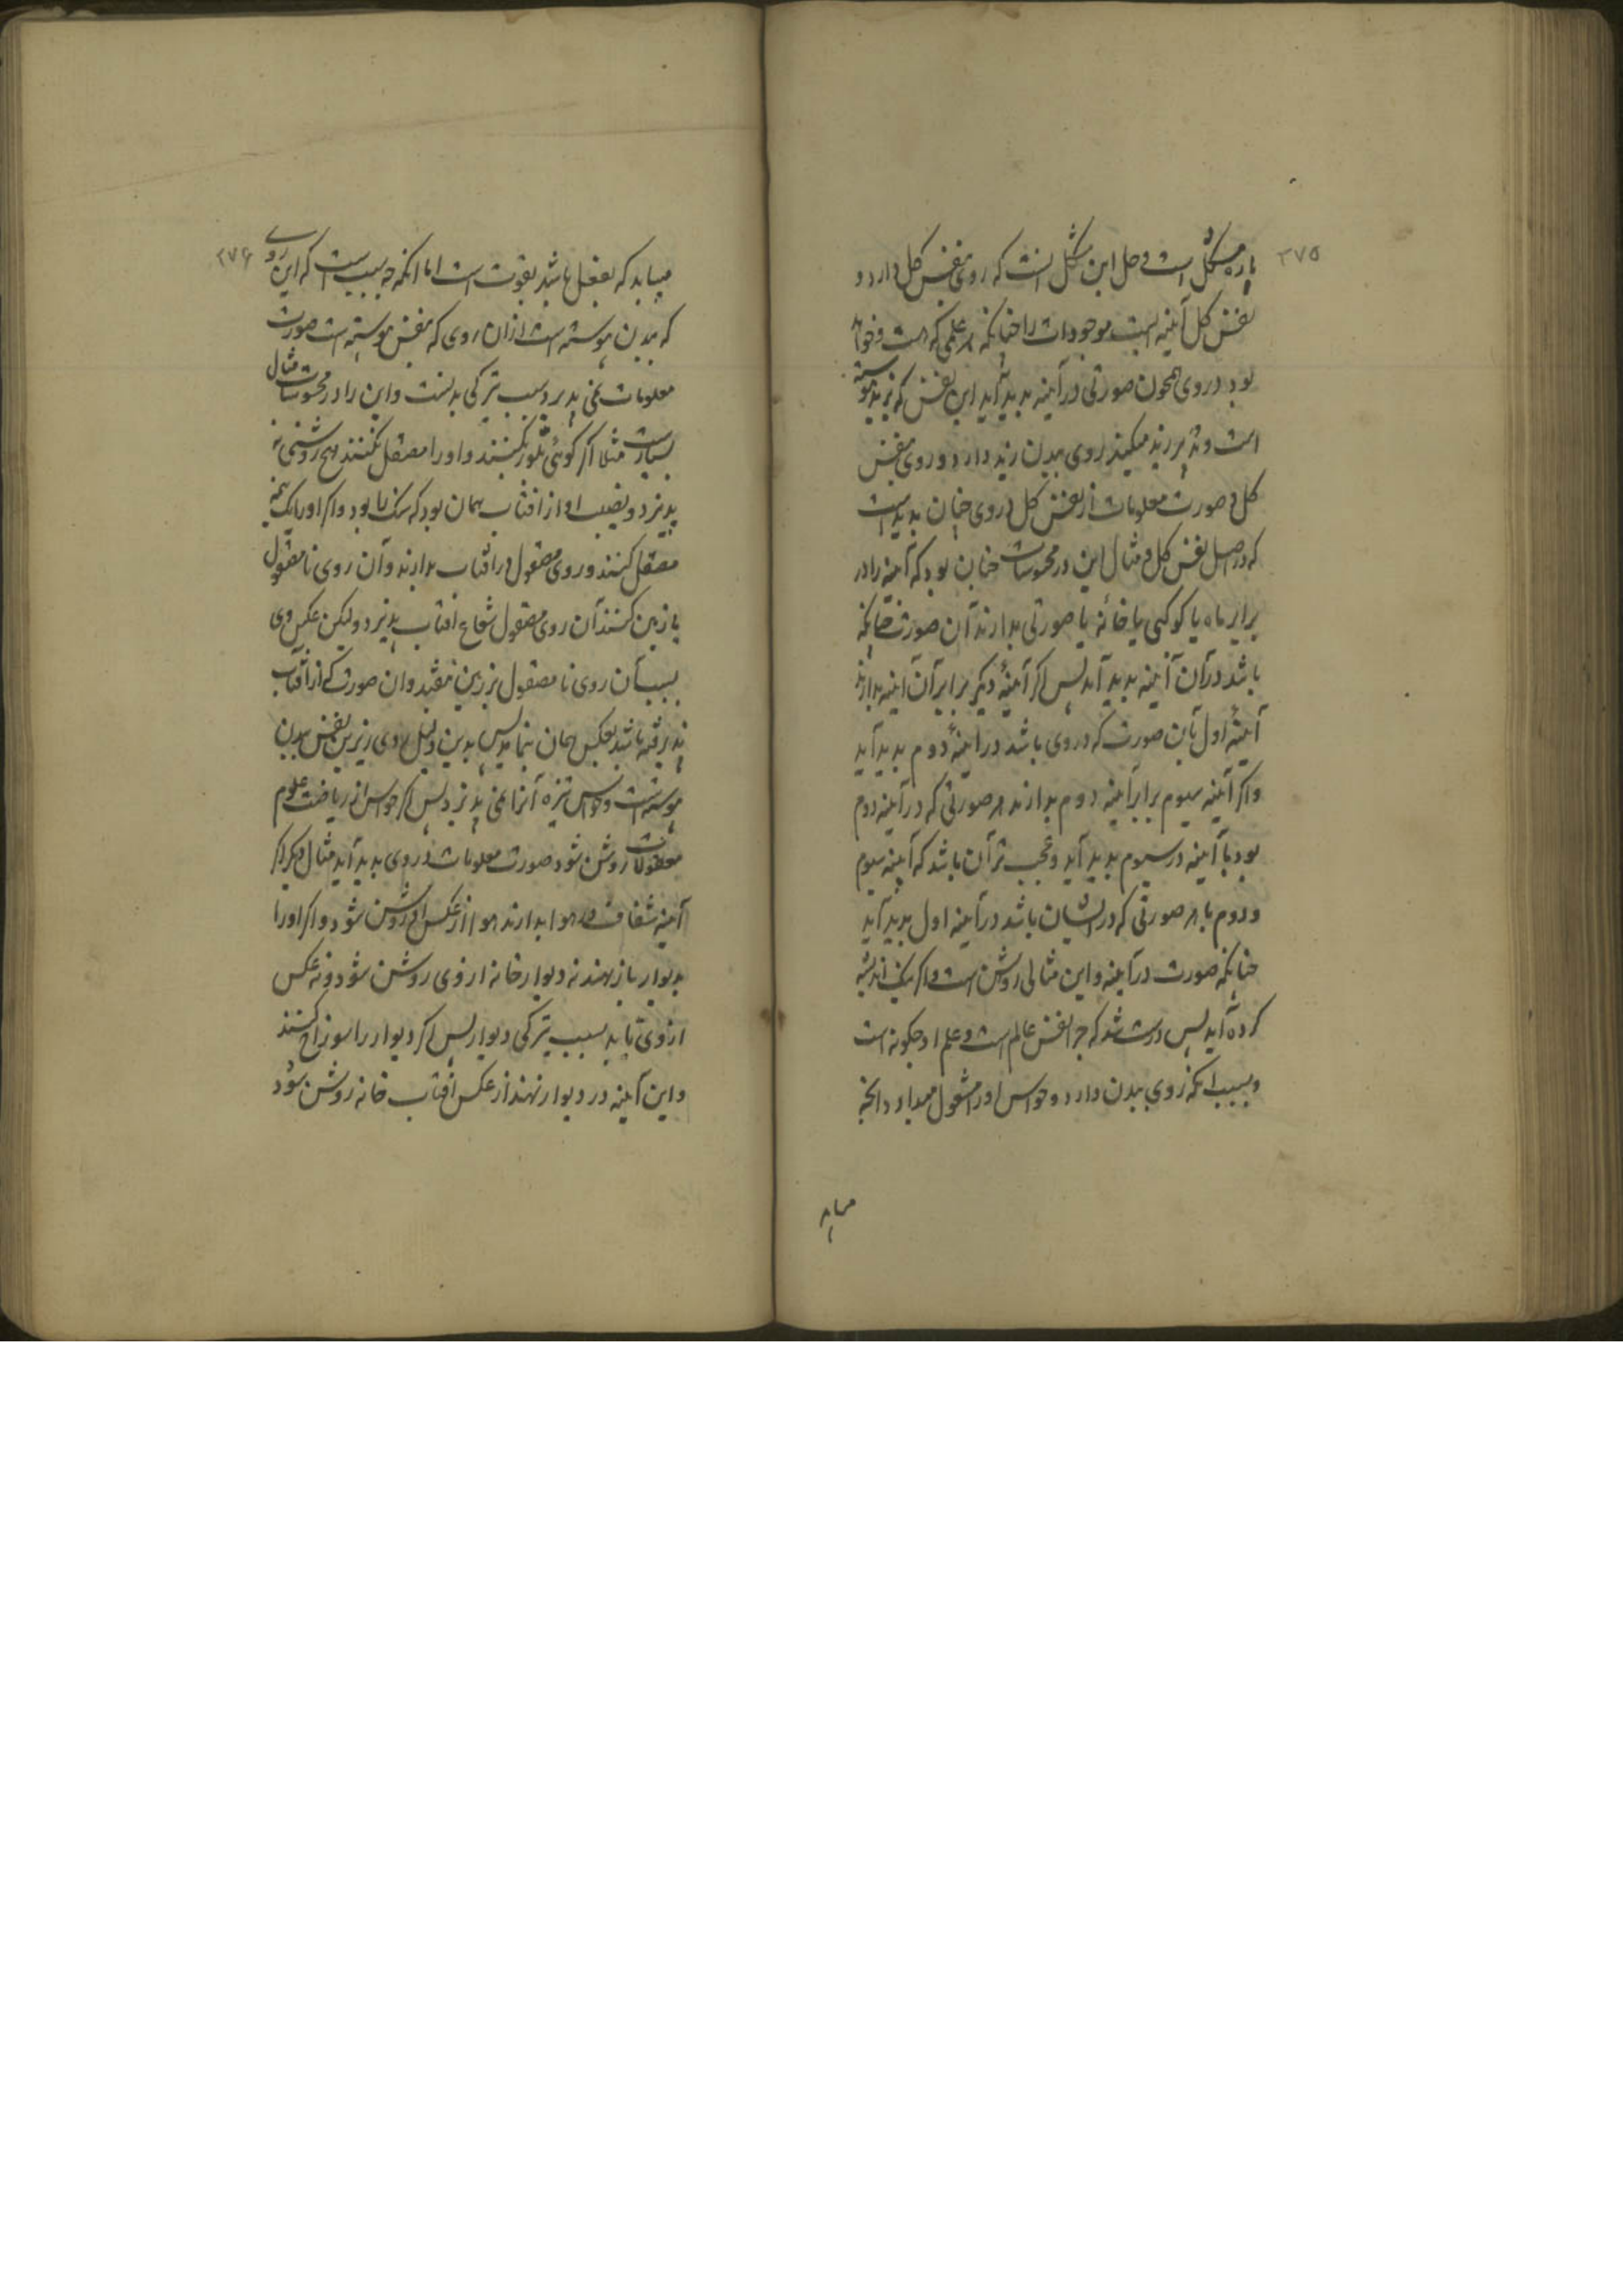 ۲۷۵
پاره مشکل است و حل این مشکل آنست که روی بنفس کل دارد و
نفس کل آینه است موجودات را چنانکه هر علمی که هست و خواهد
بود در وی همچون صورتی در آینه پدید آید این نفس که بزید پیوسته
است و تدبیر زید میکند روی ببدن زید دارد و روی بنفس
کل و صورت معلومات از نفس کل در وی چنان پدید است
که در اصل نفس کل و مثال این در محسوسات چنان بود که آینه را در
برابر ماه یا کوکبی یا خانه یا صورتی بدارند آن صورت چنانکه
باشد در آن آینه پدید آید پس اگر آینهٔ دیگر برابر آن آینه بدارند
آینهٔ اول بآن صورت که در وی باشد در آینهٔ دوم پدید آید
و اگر آینه سیوم برابر آینه دوم بدارند هر صورتی که در آینه دوم
بود با آینه در سیوم پدید آید و عجب‌تر آن باشد که آینه سیوم
و دوم با هر صورتی که در ایشان باشد در آینه اول پدید آید
چنانکه صورت در آینه و این مثالی روشن است و اگر نیک اندیشه
کرده آید پس درست شد که چرا نفس عالم است و علم او چگونه است
و بسبب آنکه روی ببدن دارد و حواس او را مشغول میدارد آنچه
میباید
۲۷۶
میباید که بفعل باشد بقوت است اما آنکه چه سبب است که این روی
که ببدن پیوسته است از آن روی که بنفس پیوسته است صورت
معلومات نمی پذیرد سبب ترکی بدنست و این را در محسوسات مثال
بسیارست مثلا اگر کوئی بلور بکنند و او را مصقل نکنند هیچ روشنی نه
پذیرد و نصیب او از آفتاب همان بود که سنگ را بود و اگر او را یک نیمه
مصقل کنند و روی مصقول در آفتاب بدارند و آن روی نامصقول
با زمین کنند آن روی مصقول شعاع آفتاب پذیرد و لیکن عکس وی
بسبب آن روی نامصقول بر زمین نیفتد و آن صورت که از آفتاب
پذیرفته باشد بعکس همان بنماید پس بدین دلیل روی زیرین نفس ببدن
پیوسته است و حواس تیره آنرا نمی پذیرد پس اگر حواس از ریاضت علوم
معقولات روشن شود صورت معلومات در وی پدید آید مثال دیگر اگر
آینه شفاف در هوا بدارند هوا از عکس او روشن شود و اگر او را
بدیوار باز نهند نه دیوار خانه از وی روشن شود و نه عکس
از وی تابد بسبب تیرکی دیوار پس اگر دیوار را سوراخ کنند
و این آینه در دیوار نهند از عکس آفتاب خانه روشن شود